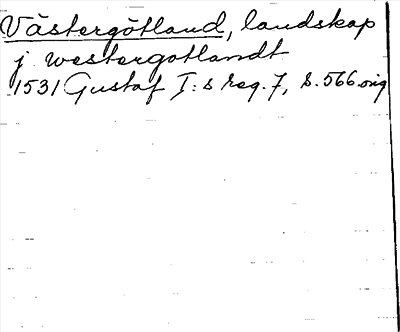 Västergötland, landskap
j westergotlandt
1531 Gustaf I:s reg. 7, s. 566 orig